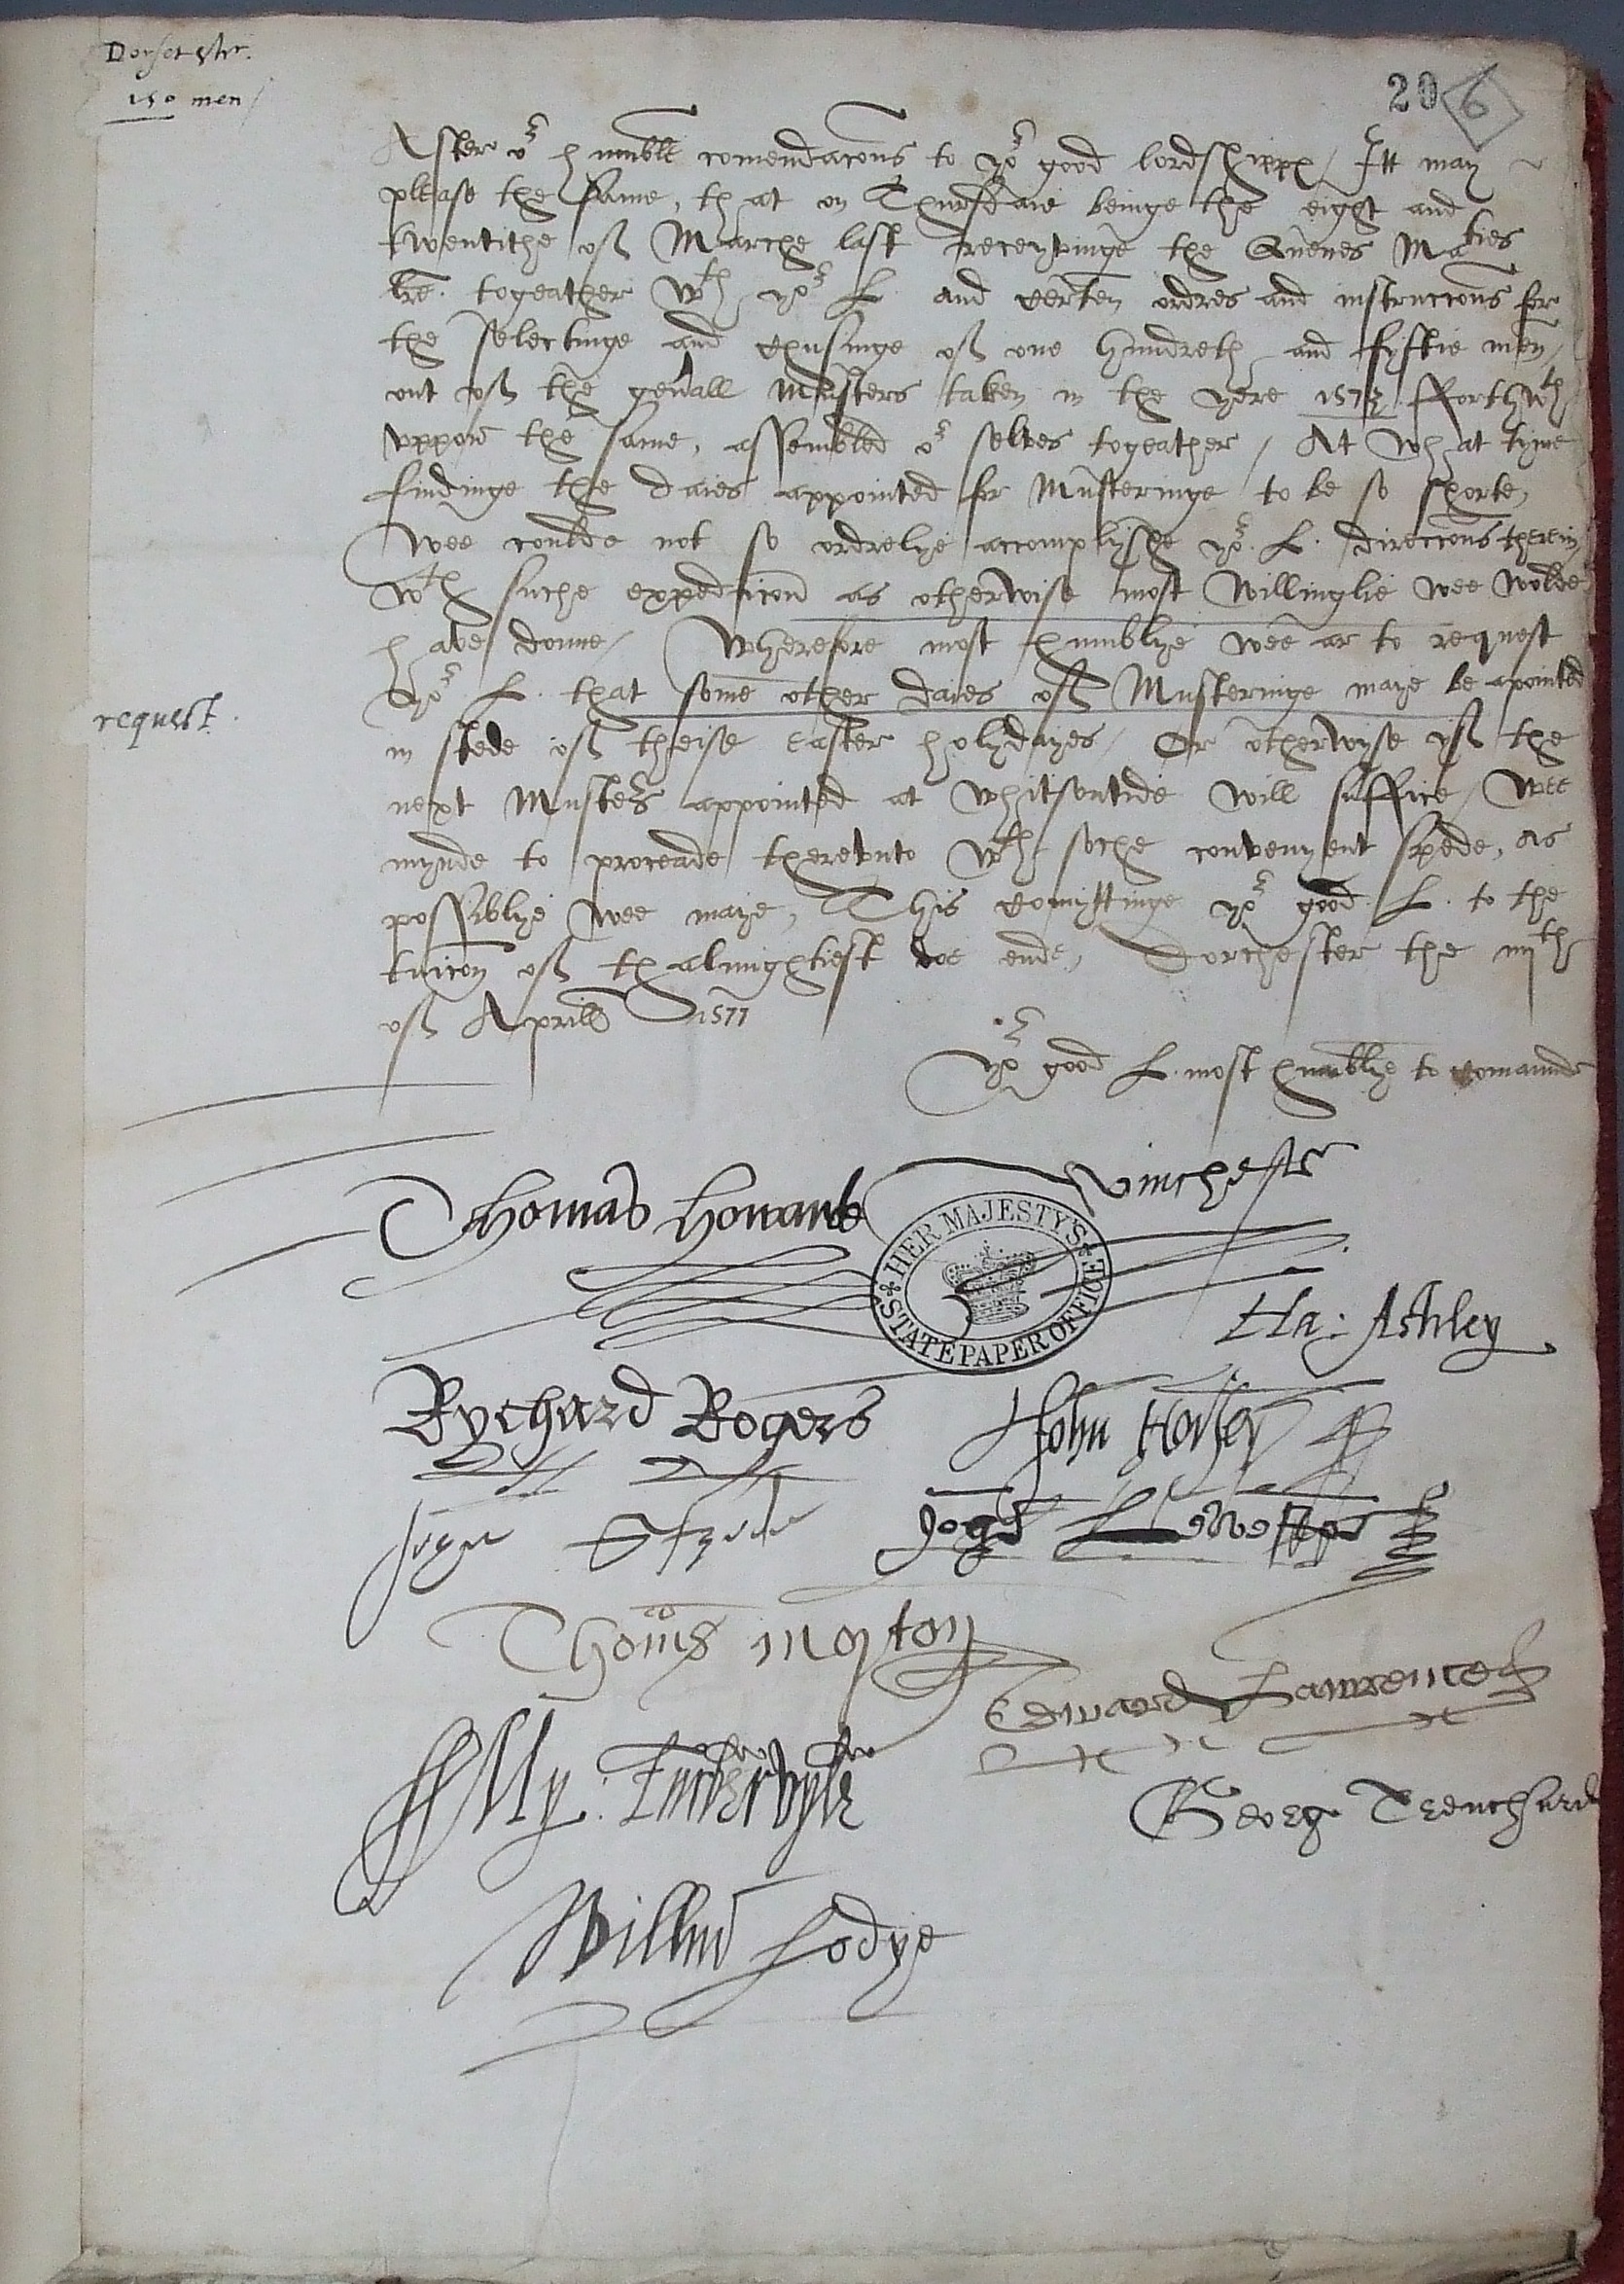 Dorsetshir.
150 men /
20
6
After or humble comendacons to yor good lordshipps / Itt may
please the same, that on Thursdaie beinge the eight and
twentithe of Marche last receyvinge the Quenes Maties
lre. togeather wth yor L. and certen ordres and instruccons for
the selectinge and chusinge of one hundreth and fyftie men /
out of the genall Musters taken in the yere 1573 fforthwth
vppon the same, assembled or selves togeather / At what tyme
findinge the daies appointed for Musteringe to be so shorte,
Wee coulde not so ordrelye accomplyshe yor. L. direccons therein
wth suche expedicon as otherwise most willinglie wee wolde
have donne / Wherefore most humblye wee ar to request
yor L. that some other daies of Musteringe maye be apointed
request.
in stede of theise Easter holydayes / Or otherwyse yf the
next Musters appointed at Whitsontide will suffice / Wee
mynde to proceade therevnto wth soche convenyent spede, as
possiblye wee maye, This comyttinge yor good L. to the
tuicon of thalmightiest doe ende, Dorchester the iiijth
of Aprill 1577
Yor good L. most humblye to comaunde
Winchester
Thomas Howarde
HER MAJESTY'S
STATE PAPER OFFICE
Ha: Ashley
Rychard Rogers
John Horsey
Thoms Morton
Edward Lawrence
Turbervyle
George Trenchard
Willm